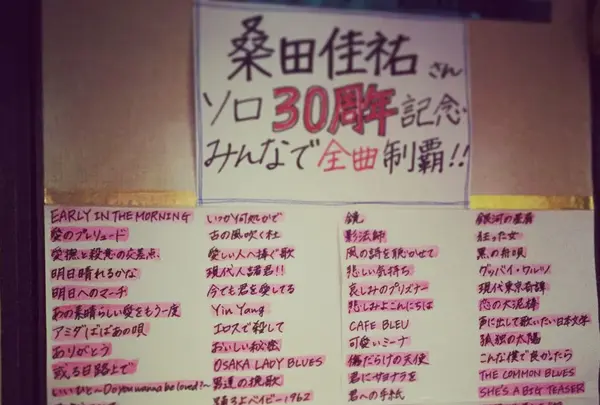 桑田佳祐さん
ソロ30周年記念
みんなで全曲制覇!!
EARLY IN THE MORNING
愛のプレリュード
愛撫と殺意の交差点
明日晴れるかな
明日へのマーチ
あの素晴らしい愛をもう一度
アミダばばあの唄
ありがとう
或る日路上で
いいひと〜Do you wanna be loved?〜
いつか何処かで
古の風吹く杜
愛しい人へ捧ぐ歌
現代人諸君!!
今でも君を愛してる
Yin Yang
エロスで殺して
おいしい秘密
OSAKA LADY BLUES
男達の挽歌
踊ろよベイビー1962
鏡
影法師
風の詩を聴かせて
悲しい気持ち
哀しみのプリズナー
悲しみよこんにちは
CAFE BLEU
可愛いミーナ
傷だらけの天使
君にサヨナラを
君への手紙
銀河の星屑
狂った女
黒の指環
グッバイ・ワルツ
現代東京奇譚
恋の大泥棒
声に出して歌いたい日本文学
孤独の太陽
こんな僕で良かったら
THE COMMON BLUES
SHE'S A BIG TEASER